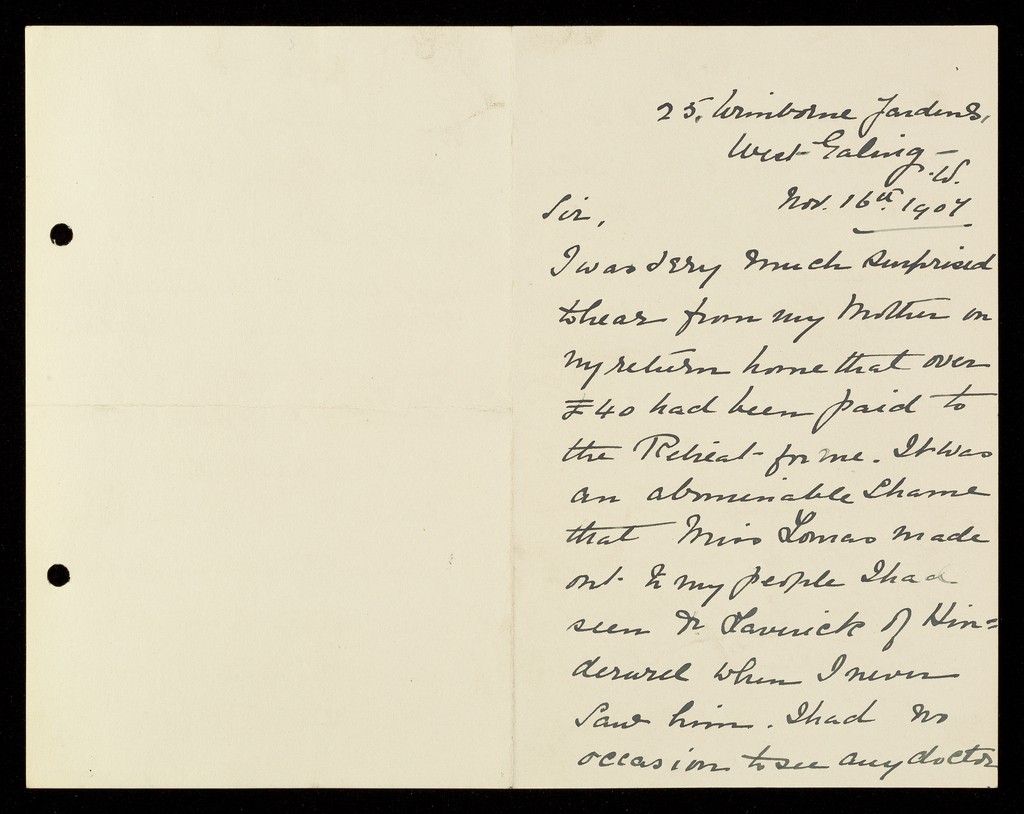 25. Wimborne Gardens,
West Ealing –
.W.
Nov. 16th 1907
Sir,
I was very much surprised
to hear from my Mother on
my return home that over
£40 had been paid to
the Retreat for me. It was
an abominable shame
that Miss Lomas made
out to my people I had
seen Dr Laverick of Hin=
derwel when I never
saw him. I had no
occasion to see any doctor